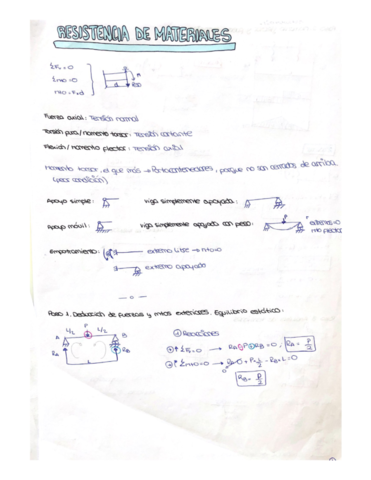 RESISTENCIA DE MATERIALES
ΣF = 0
Σmo = 0
mo = F·d
Fuerza axial: Tensión normal
Torsión pura/momento torsor: Tensión cortante
Flexión/momento flector: Tensión axial
Momento torsor, el que más → Portacontenedores, porque no son cerrados de arriba
Apoyo simple:
Viga simplemente apoyada:
Apoyo móvil:
Viga simplemente apoyada con peso:
extremos = 0
mto flector
Empotramiento:
extremo libre → mto = 0
extremo apoyado
— o —
Paso 1. Deducción de fuerzas y mtos exteriores. Equilibrio estático:
L/2 P L/2
A B
RA RB
L
① Reacciones
ΣF = 0 → RA - P + RB = 0. RA = P/2
ΣmA = 0 → RA·0 + P·L/2 - RB·L = 0
RB = P/2